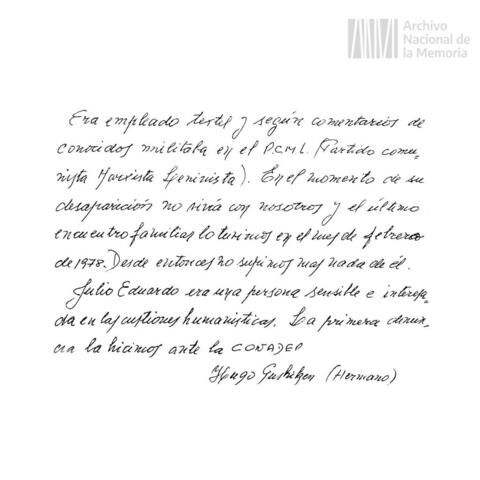 Archivo
Nacional de
la Memoria
Era empleado textil y según comentarios de
conocidos militaba en el P.C.M.L. (Partido comu-
nista Marxista Leninista). En el momento de su
desaparición no vivía con nosotros y el último
encuentro familiar lo tuvimos en el mes de febrero
de 1978. Desde entonces no supimos mas nada de él.
Julio Eduardo era una persona sensible e interesa-
da en las cuestiones humanísticas. La primera denun-
cia la hicimos ante la CONADEP
Hugo (Hermano)